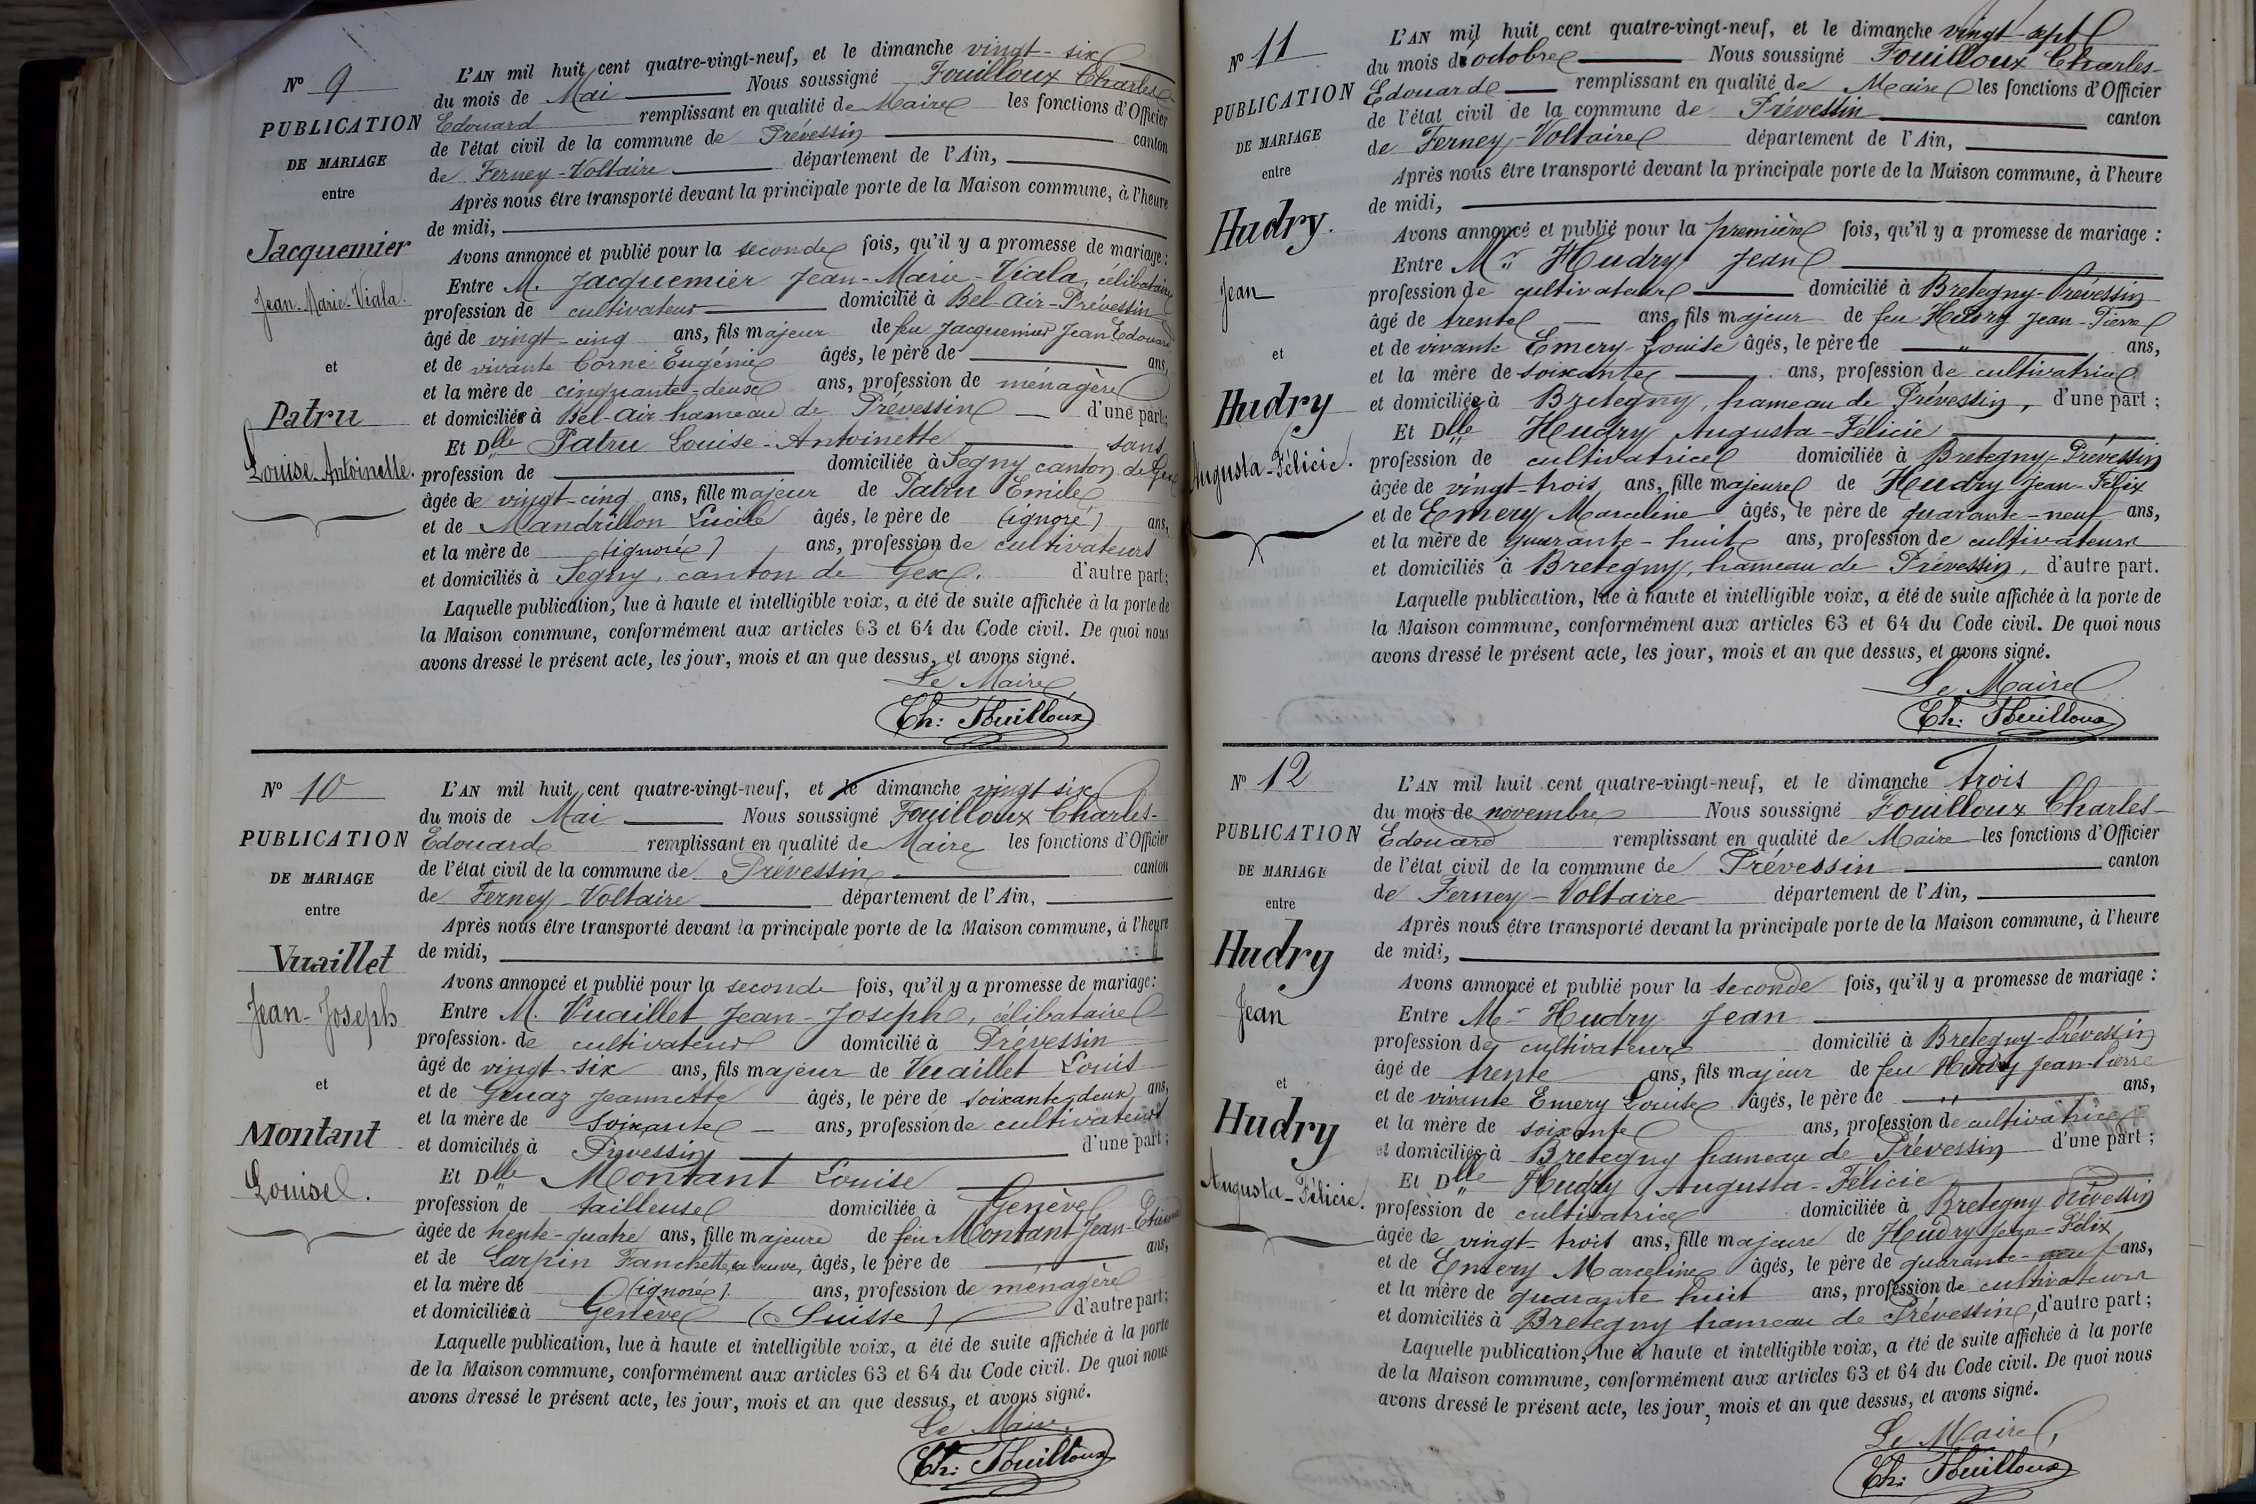 N° 9
PUBLICATION
DE MARIAGE
entre
Jacquemier
Jean-Marie-Viala.
et
Patru
Louise-Antoinette.
L'AN mil huit cent quatre-vingt-neuf, et le dimanche vingt-six
du mois de Mai Nous soussigné Fouilloux Charles
Edouard remplissant en qualité de Maire les fonctions d'Officier
de l'état civil de la commune de Prévessin canton
de Ferney-Voltaire département de l'Ain,
Après nous être transporté devant la principale porte de la Maison commune, à l'heure
de midi,
Avons annoncé et publié pour la seconde fois, qu'il y a promesse de mariage:
Entre M. Jacquemier Jean-Marie-Viala, célibataire
profession de cultivateur domicilié à Bel-Air-Prévessin
âgé de vingt-cinq ans, fils majeur de feu Jacquemier Jean Edouard
et de vivante Corne Eugénie âgés, le père de ans,
et la mère de cinquante-deux ans, profession de ménagère
et domiciliés à Bel-Air hameau de Prévessin d'une part;
Et Dlle Patru Louise-Antoinette sans
profession de domiciliée à Segny canton de Gex
âgée de vingt-cinq ans, fille majeur de Patru Emile
et de Mandrillon Lucile âgés, le père de (ignoré) ans,
et la mère de (ignoré) ans, profession de cultivateurs
et domiciliés à Segny, canton de Gex. d'autre part;
Laquelle publication, lue à haute et intelligible voix, a été de suite affichée à la porte de
la Maison commune, conformément aux articles 63 et 64 du Code civil. De quoi nous
avons dressé le présent acte, les jour, mois et an que dessus, et avons signé.
Le Maire
Ch: Fouilloux
N° 10
PUBLICATION
DE MARIAGE
entre
Vuaillet
Jean-Joseph
et
Montant
Louise.
L'AN mil huit cent quatre-vingt-neuf, et le dimanche vingt six
du mois de Mai Nous soussigné Fouilloux Charles-
Edouard remplissant en qualité de Maire les fonctions d'Officier
de l'état civil de la commune de Prévessin canton
de Ferney-Voltaire département de l'Ain,
Après nous être transporté devant la principale porte de la Maison commune, à l'heure
de midi,
Avons annoncé et publié pour la seconde fois, qu'il y a promesse de mariage:
Entre M. Vuaillet Jean-Joseph, célibataire
profession de cultivateur domicilié à Prévessin
âgé de vingt-six ans, fils majeur de Vuaillet Louis
et de Gruaz Jeannette âgés, le père de soixante-deux ans,
et la mère de soixante ans, profession de cultivateurs
et domiciliés à Prévessin d'une part;
Et Dlle Montant Louise
profession de tailleuse domiciliée à Genève
âgée de trente-quatre ans, fille majeure de feu Montant Jean-Etienne
et de Larpin Fanchette, sa veuve, âgés, le père de ans,
et la mère de (ignorée). ans, profession de ménagère
et domiciliée à Genève (Suisse) d'autre part;
Laquelle publication, lue à haute et intelligible voix, a été de suite affichée à la porte
de la Maison commune, conformément aux articles 63 et 64 du Code civil. De quoi nous
avons dressé le présent acte, les jour, mois et an que dessus, et avons signé.
Le Maire.
Ch: Fouilloux
N° 11
PUBLICATION
DE MARIAGE
entre
Hudry.
Jean
et
Hudry
Augusta-Félicie.
L'AN mil huit cent quatre-vingt-neuf, et le dimanche vingt-sept
du mois d'octobre Nous soussigné Fouilloux Charles-
Edouard remplissant en qualité de Maire les fonctions d'Officier
de l'état civil de la commune de Prévessin canton
de Ferney-Voltaire département de l'Ain,
Après nous être transporté devant la principale porte de la Maison commune, à l'heure
de midi,
Avons annoncé et publié pour la première fois, qu'il y a promesse de mariage :
Entre Mr Hudry Jean
profession de cultivateur domicilié à Bretegny-Prévessin
âgé de trente ans, fils majeur de feu Hudry Jean-Pierre
et de vivante Emery Louise âgés, le père de " ans,
et la mère de soixante ans, profession de cultivatrice
et domiciliée à Bretegny, hameau de Prévessin, d'une part ;
Et Dlle Hudry Augusta-Félicie
profession de cultivatrice domiciliée à Bretegny-Prévessin
âgée de vingt-trois ans, fille majeure de Hudry Jean-Félix
et de Emery Marceline âgés, le père de quarante-neuf ans,
et la mère de quarante-huit ans, profession de cultivateurs
et domiciliés à Bretegny, hameau de Prévessin, d'autre part.
Laquelle publication, lue à haute et intelligible voix, a été de suite affichée à la porte de
la Maison commune, conformément aux articles 63 et 64 du Code civil. De quoi nous
avons dressé le présent acte, les jour, mois et an que dessus, et avons signé.
Le Maire
Ch: Fouilloux
N° 12
PUBLICATION
DE MARIAGE
entre
Hudry
Jean
et
Hudry
Augusta-Félicie.
L'AN mil huit cent quatre-vingt-neuf, et le dimanche trois
du mois de novembre Nous soussigné Fouilloux Charles-
Edouard remplissant en qualité de Maire les fonctions d'Officier
de l'état civil de la commune de Prévessin canton
de Ferney-Voltaire département de l'Ain,
Après nous être transporté devant la principale porte de la Maison commune, à l'heure
de midi,
Avons annoncé et publié pour la seconde fois, qu'il y a promesse de mariage :
Entre Mr Hudry Jean
profession de cultivateur domicilié à Bretegny-Prévessin
âgé de trente ans, fils majeur de feu Hudry Jean-Pierre
et de vivante Emery Louise âgés, le père de " ans,
et la mère de soixante ans, profession de cultivatrice
et domiciliés à Bretegny hameau de Prévessin d'une part ;
Et Dlle Hudry Augusta-Félicie
profession de cultivatrice domiciliée à Bretegny Prévessin
âgée de vingt-trois ans, fille majeure de Hudry Jean-Félix
et de Emery Marceline âgés, le père de quarante-neuf ans,
et la mère de quarante huit ans, profession de cultivateurs
et domiciliés à Bretegny hameau de Prévessin, d'autre part ;
Laquelle publication, lue à haute et intelligible voix, a été de suite affichée à la porte
de la Maison commune, conformément aux articles 63 et 64 du Code civil. De quoi nous
avons dressé le présent acte, les jour, mois et an que dessus, et avons signé.
Le Maire,
Ch: Fouilloux